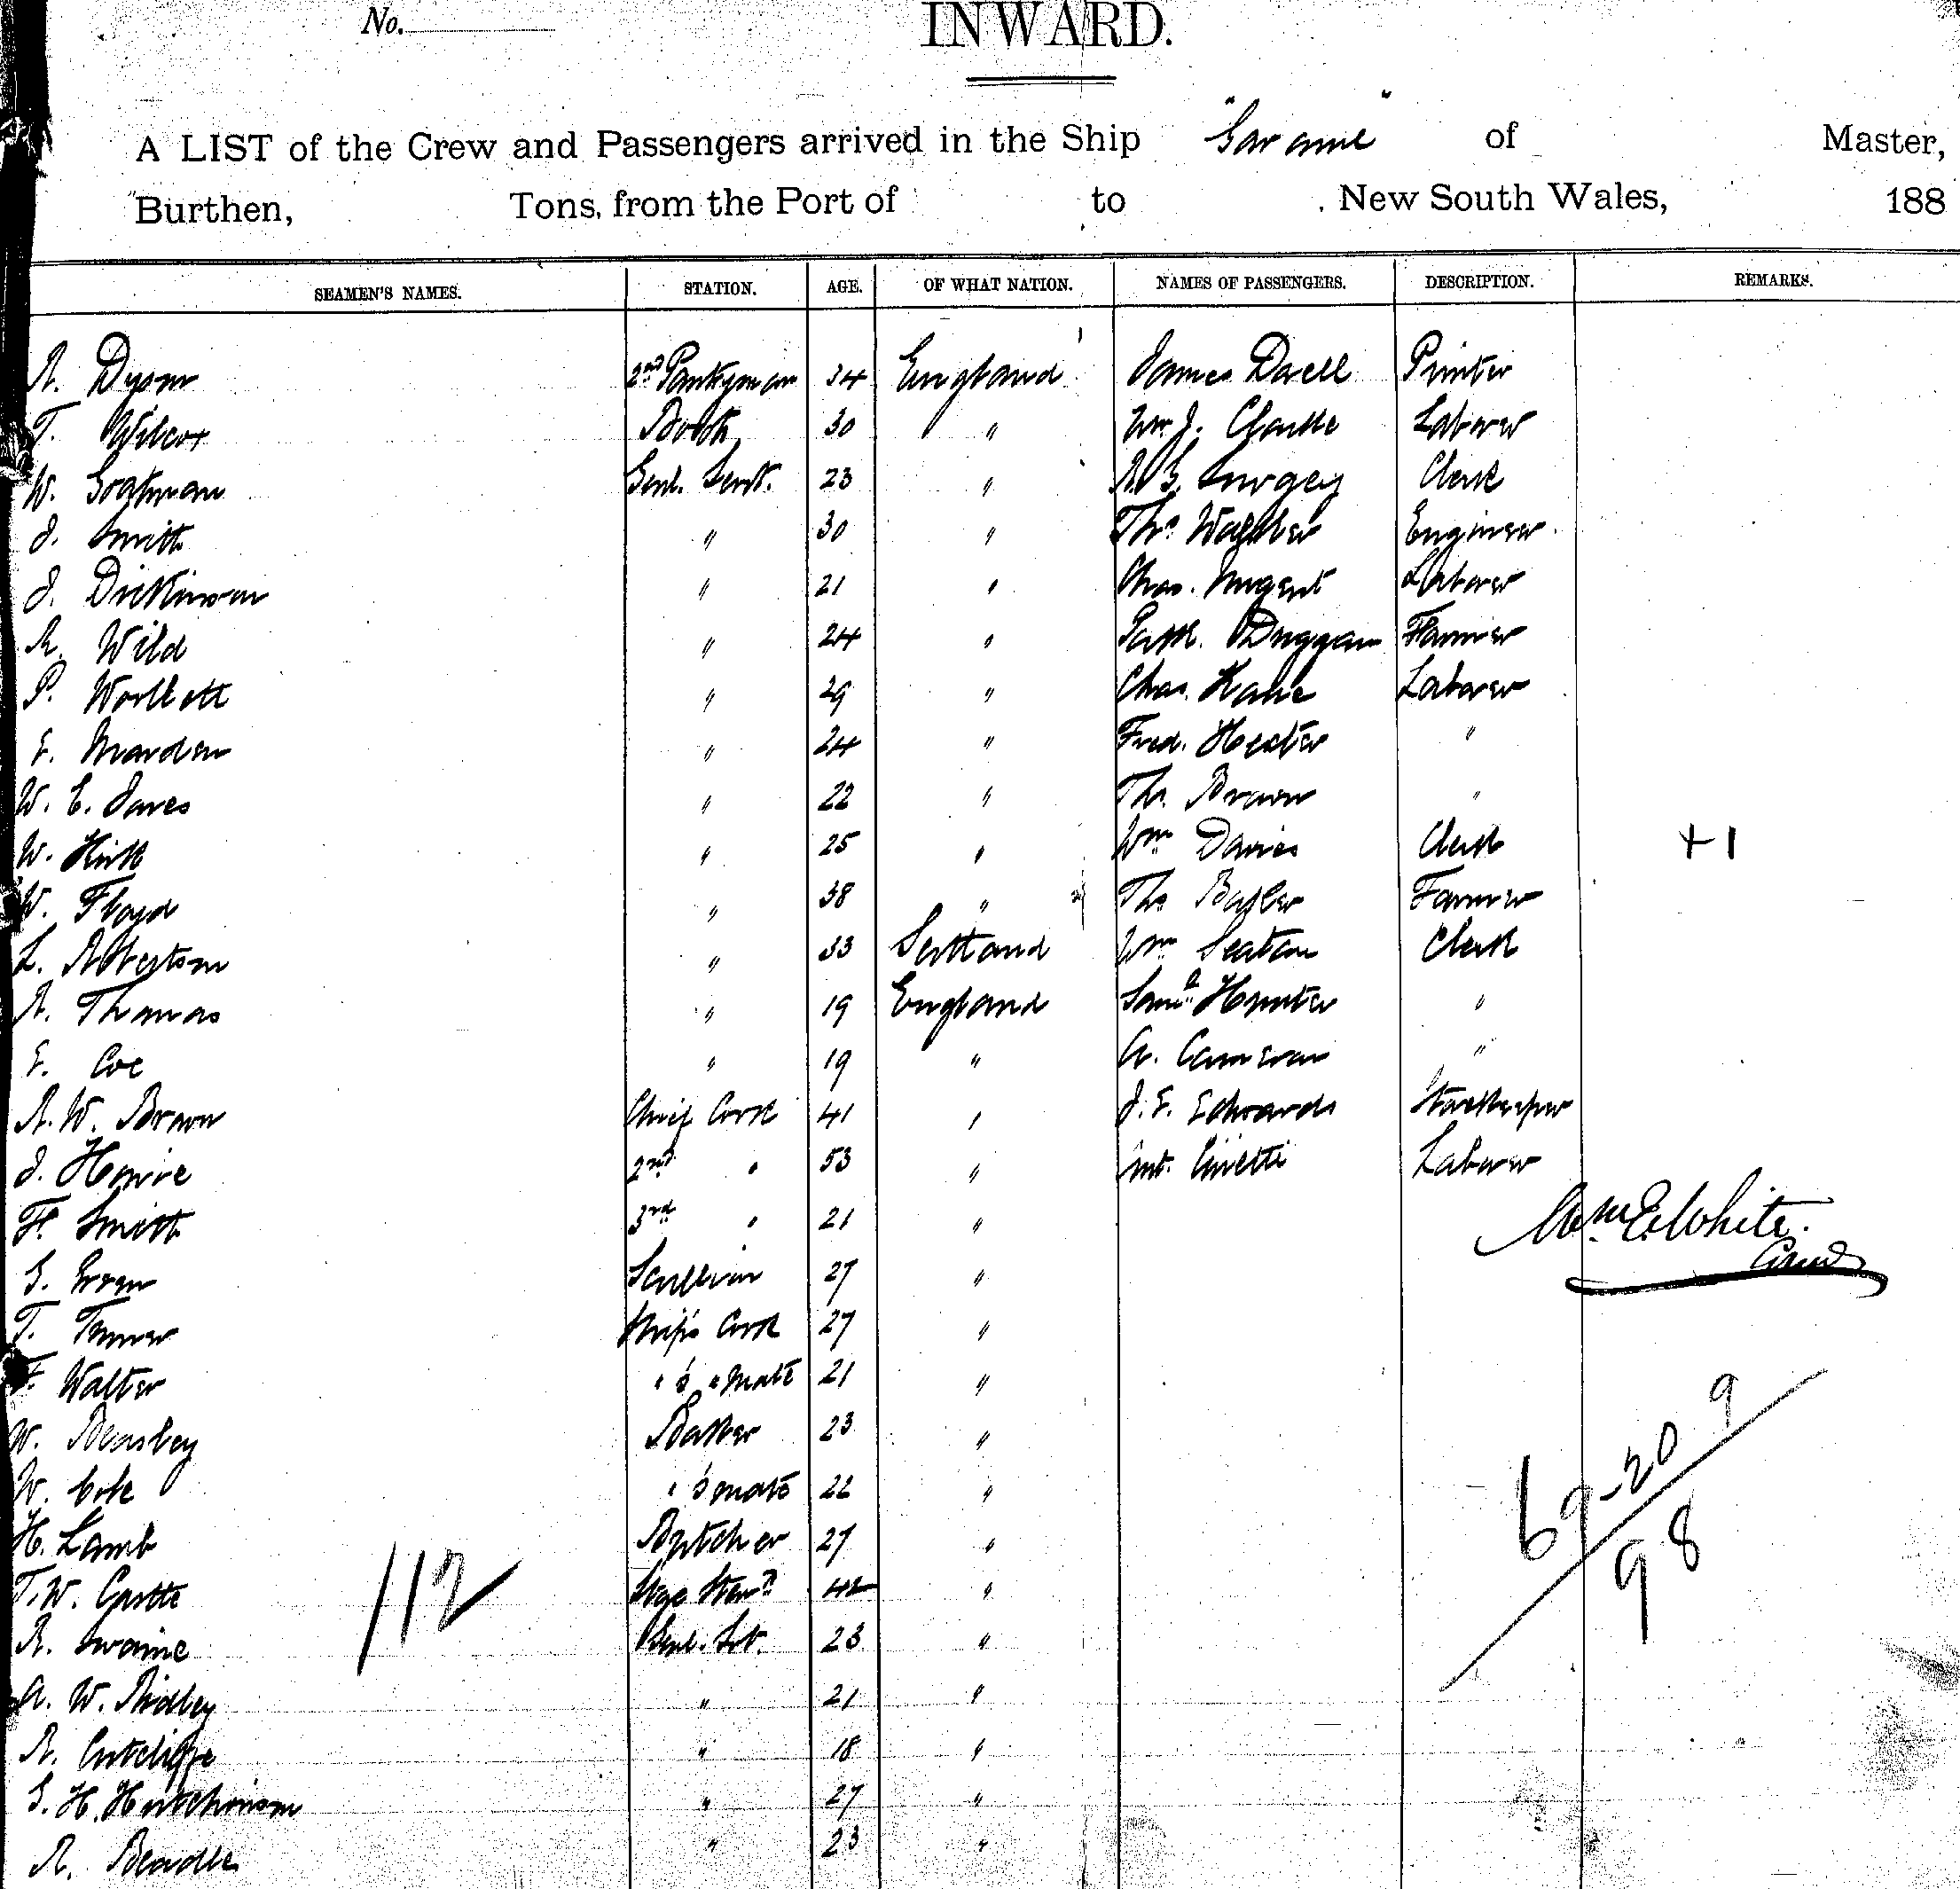 No.
INWARD.
A LIST of the Crew and Passengers arrived in the Ship "Garonne" of Master,
Burthen, Tons, from the Port of to , New South Wales, 188
SEAMEN'S NAMES. STATION. AGE. OF WHAT NATION. NAMES OF PASSENGERS. DESCRIPTION. REMARKS.
R. Dyson 2nd Pantryman 34 England James Dacell Printer
T. Wilcox Booth 30 " Wm J. Clarke Laborer
W. Goatman Genl. Servt. 23 " R. G. Surgey Clerk
J. Smith " 30 " Thos. Walker Engineer
J. Dickinson " 21 " Chas. Nugent Laborer
R. Wild " 24 " Patk. Duggan Farmer
P. Wollcott " 29 " Chas. Kane Laborer
E. Marden " 24 " Fred. Hexter "
W. E. Janes " 22 " Thos. Brown "
W. Kirk " 25 " Wm Davies Clerk +1
W. Floyd " 38 " Thos Butler Farmer
L. Robertson " 33 Scotland Wm Seaton Clerk
R. Thomas " 19 England Saml. Hunter "
E. Coe " 19 " A. Cameron "
R. W. Brown Chief Cook 41 " J. E. Edwards Storekeeper
J. Howie 2nd " 53 " Ant. Laborer
F. Smith 3rd " 21 " Wm E. White.
G. Green Scullion 27 "
T. Turner Ship's Cook 27 "
F. Walter " 's " mate 21 "
W. Beasley Baker 23 "
W. Cole " 's mate 22 "
H. Lamb Butcher 27 "
T. W. Castle Stge Stewd 42 "
R. Swaine Genl. Svt. 23 "
A. W. Ridley " 21 "
R. Cutcliffe " 18 "
G. H. Hutchinson " 27 "
R. Beadle " 23 "
112
69-20 9
98